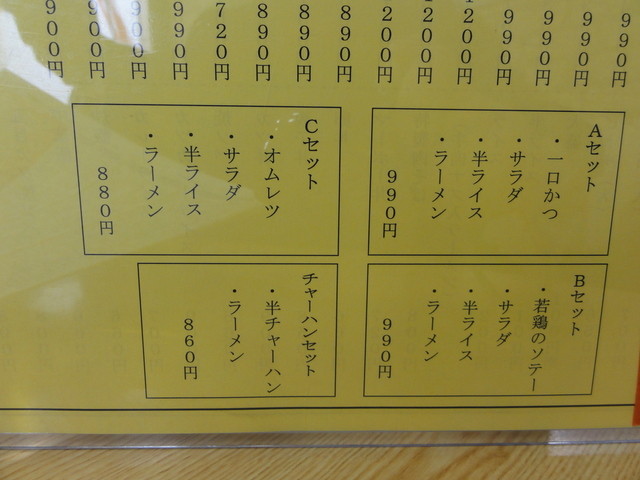 990円
990円
990円
990円
1200円
1200円
200円
890円
890円
890円
720円
990円
900円
900円
900円
Aセット
・一口かつ
・サラダ
・半ライス
・ラーメン
990円
Bセット
・若鶏のソテー
・サラダ
・半ライス
・ラーメン
990円
Cセット
・オムレツ
・サラダ
・半ライス
・ラーメン
880円
チャーハンセット
・半チャーハン
・ラーメン
860円